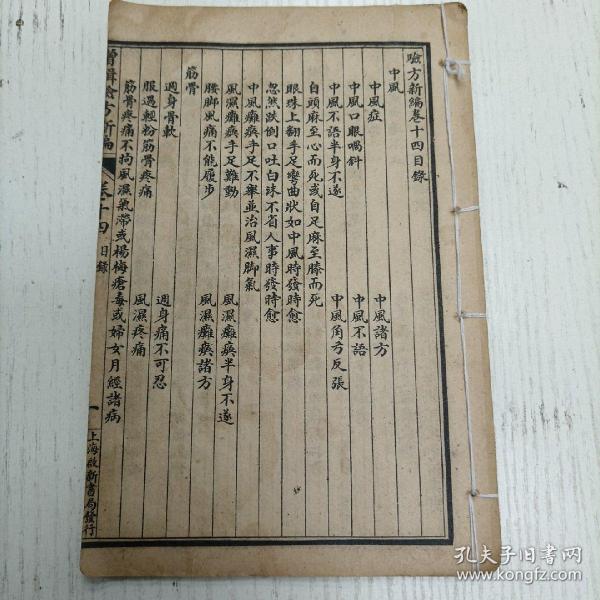 驗方新編卷十四目錄
中風
中風症
中風諸方
中風口眼喎斜
中風不語
中風不語半身不遂
中風角弓反張
自頭麻至心而死或自足麻至膝而死
眼珠上翻手足彎曲狀如中風時發時愈
忽然跌倒口吐白珠不省人事時發時愈
中風癱瘓手足不舉並治風濕脚氣
風濕癱瘓手足難動
風濕癱瘓半身不遂
腰脚風痛不能履步
風濕癱瘓諸方
筋骨
週身骨軟
週身痛不可忍
服過輕粉筋骨疼痛
風濕疼痛
筋骨疼痛不拘風濕氣滯或楊梅瘡毒或婦女月經諸病
增輯驗方新編
卷十四
目錄
一
上海啟新書局發行
孔夫子旧书网
www.kongfz.com